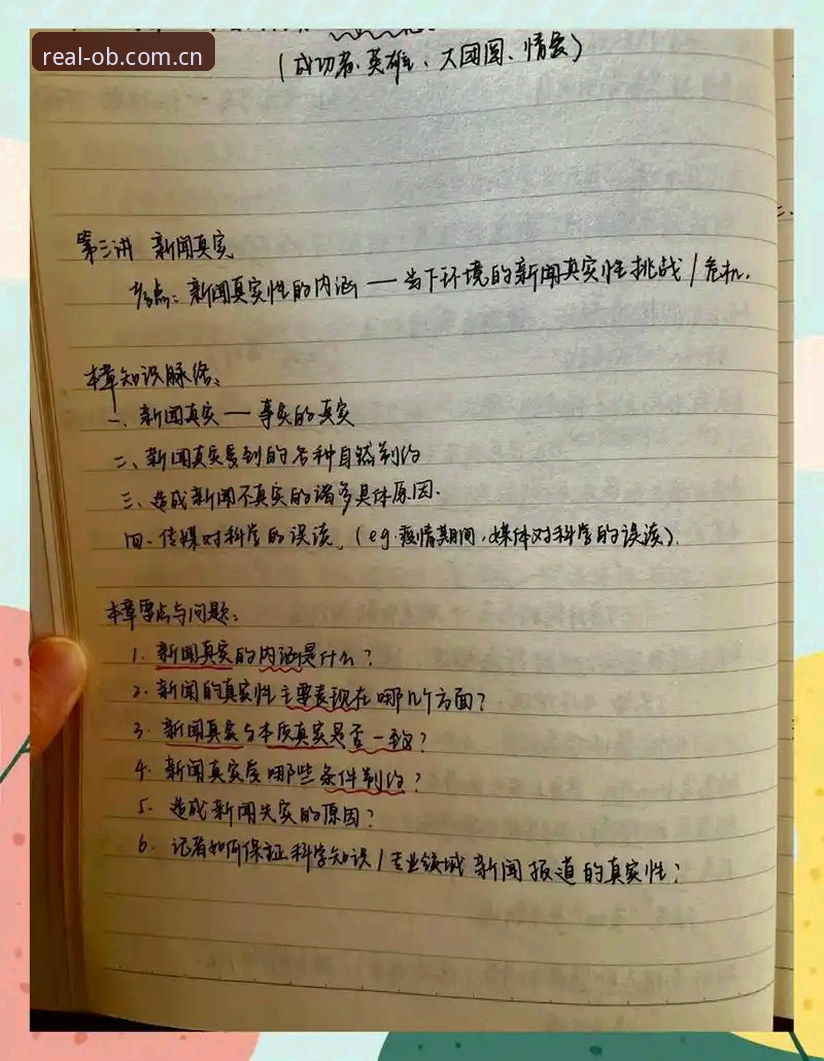 real-ob.com.cn
(成功者、英雄、大团圆、情爱)
第三讲 新闻真实
考点:新闻真实性的内涵——当下环境的新闻真实性挑战/危机.
本章知识脉络:
一、新闻真实——事实的真实
二、新闻真实受到的各种自然制约
三、造成新闻不真实的诸多具体原因.
四、传媒对科学的误读。(eg.疫情期间,媒体对科学的误读).
本章要点与问题:
1. 新闻真实的内涵是什么?
2. 新闻的真实性主要表现在哪几个方面?
3. 新闻真实与本质真实是否一致?
4. 新闻真实受哪些条件制约?
5. 造成新闻失实的原因?
6. 记者如何保证科学知识/专业领域新闻报道的真实性?